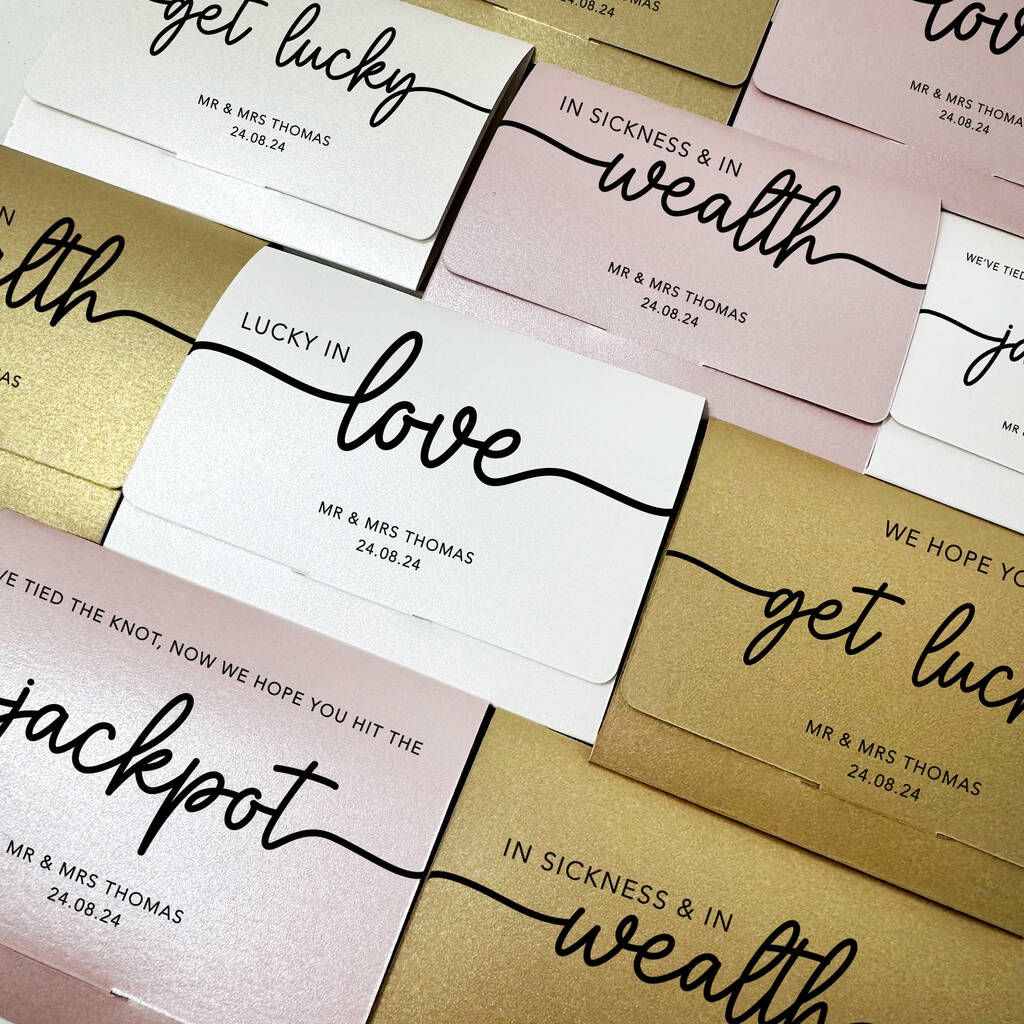 get lucky
MR & MRS THOMAS
24.08.24
24.08.24
MR & MRS THOMAS
24.08.24
IN SICKNESS & IN
wealth
MR & MRS THOMAS
24.08.24
WE'VE TIED
LUCKY IN
love
MR & MRS THOMAS
24.08.24
WE HOPE
get
MR & MRS THOMAS
24.08.24
TIED THE KNOT, NOW WE HOPE YOU HIT THE
jackpot
MR & MRS THOMAS
24.08.24
IN SICKNESS & IN
wealth